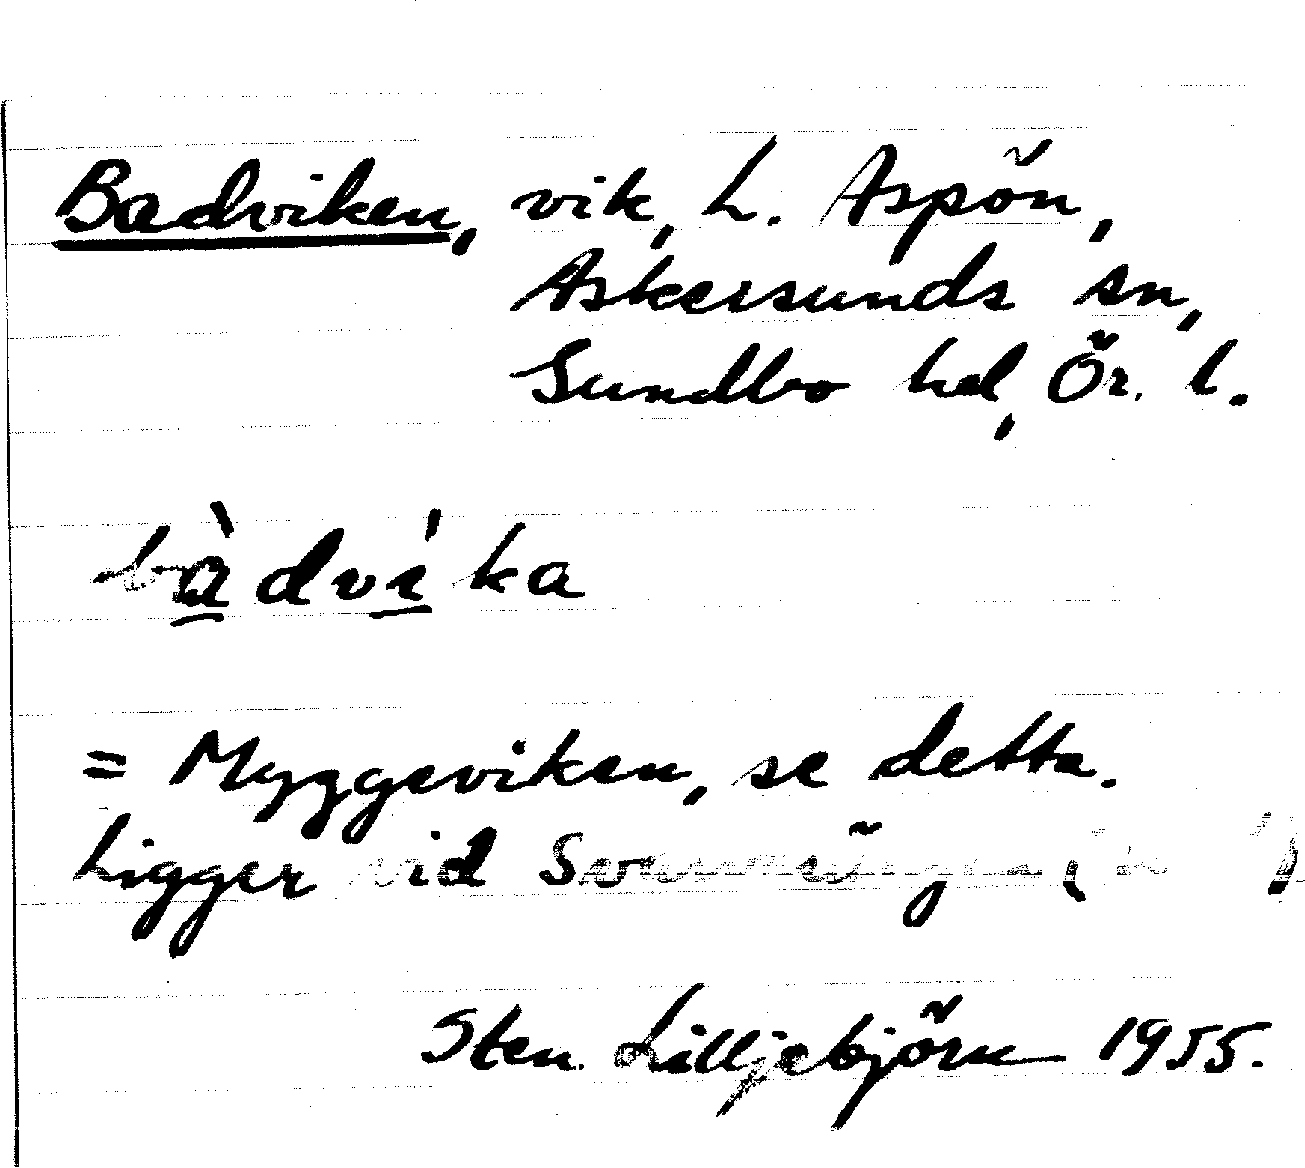 Badviken, vik, L. Aspön,
Askersunds sn,
Sundbo hd, Ör. l.
bàdvíka
= Myggeviken, se detta.
Ligger vid
Sten Lilljebjörn 1955.